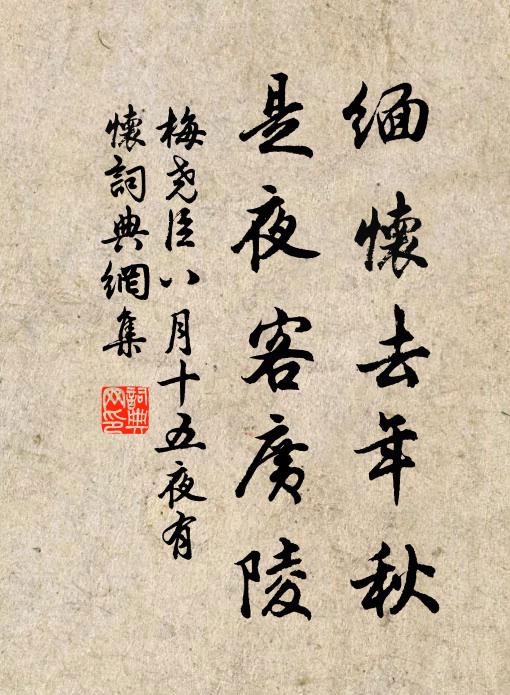 緬懷去年秋
是夜客廣陵
梅堯臣八月十五夜有
懷詞典網集
詞典
网印